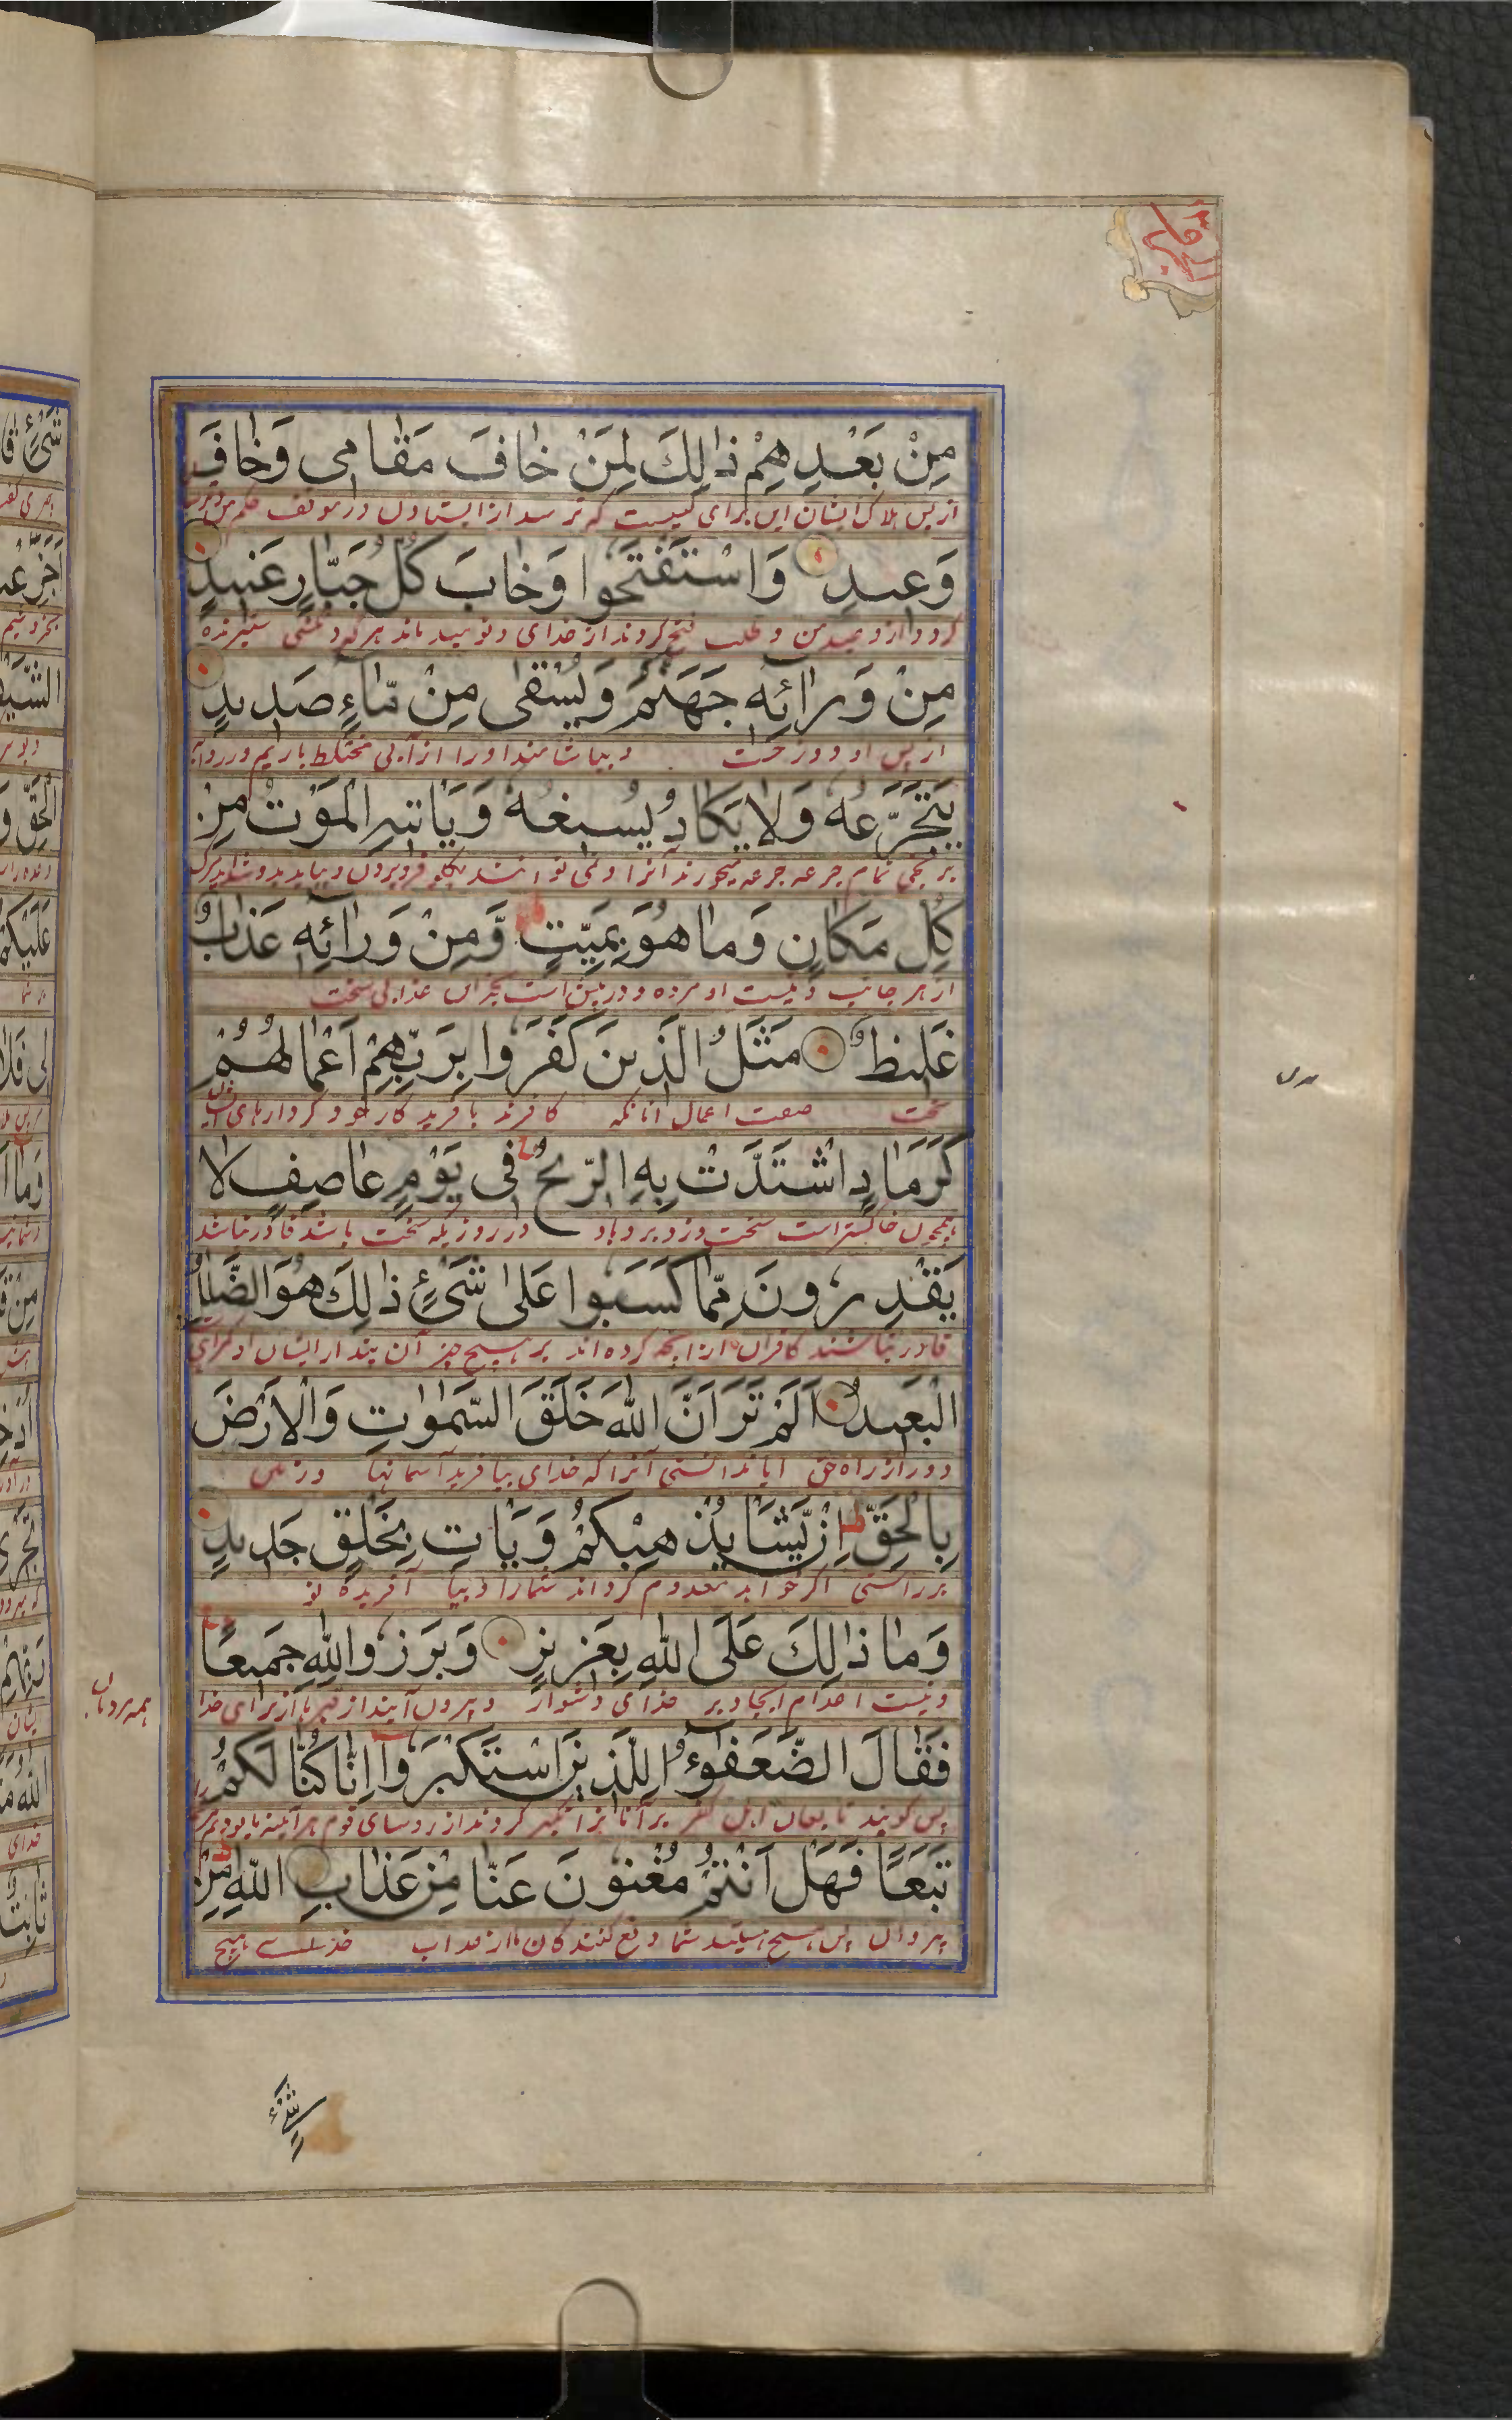 مِنْ بَعْدِهِمْ ذٰلِكَ لِمَنْ خٰافَ مَقٰامی وَخٰافَ
از پس هلاک ایشان این برای کیست که ترسد از ایستادن در موقف حکم من و ترسد
وَعیدِ وَاسْتَفْتَحُوا وَخٰابَ كُلُّ جَبّٰارٍ عَنیدٍ
و طلب فتح کردند از خدای و نومید ماند هر گردنکشی ستیزنده
مِنْ وَرٰائِهٖ جَهَنَّمُ وَیُسْقٰی مِنْ مّٰاءٍ صَدیدٍ
از پس او دوزخست و بیاشامند او را از آبی مختلط بار
یَتَجَرَّعُهُ وَلٰا یَكٰادُ یُسیغُهُ وَیَاْتیهِ الْمَوْتُ مِنْ
بر تلخی تمام جرعه جرعه میخورند آنرا و نمی توانند بگلو فرو بردن و بیاید بدو شداید مرگ
كُلِّ مَكٰانٍ وَمٰا هُوَ بِمَیِّتٍ وَّمِنْ وَرٰائِهٖ عَذٰابٌ
از هر جانب و نیست او مرده و در پیش است بجز آن عذابی سخت
غَلیظٌ مَثَلُ الَّذینَ كَفَرُوا بِرَبِّهِمْ اَعْمٰالُهُمْ
سخت صفت اعمال آنانکه کافرند بآفریدکار خود کردارهای
كَرَمٰادٍ اشْتَدَّتْ بِهِ الرّیحُ فی یَوْمٍ عٰاصِفٍ لٰا
همچون خاکستر است سخت وزد برو باد در روزیکه سخت باشد قادر نباشند
یَقْدِرُونَ مِمّٰا كَسَبُوا عَلٰی شَیْءٍ ذٰلِكَ هُوَ الضَّلٰلُ
قادر نباشند کافران از آنچه کرده اند بر هیچ چیز آن پندار ایشان
الْبَعیدُ اَلَمْ تَرَ اَنَّ اللّٰهَ خَلَقَ السَّمٰوٰاتِ وَالْاَرْضَ
دور از راه حق ایا ندانستی آنرا که خدای بیافرید آسمانها و زمین
بِالْحَقِّ اِنْ یَّشَاْ یُذْهِبْكُمْ وَیَاْتِ بِخَلْقٍ جَدیدٍ
بر راستی اگر خواهد معدوم گرداند شما را و بیا آفریده نو
وَمٰا ذٰلِكَ عَلَی اللّٰهِ بِعَزیزٍ وَبَرَزُوا لِلّٰهِ جَمیعًا
و نیست اعدام ایجاد بر خدای دشوار و بیرون آیند از قبرها از برای خدا
فَقٰالَ الضُّعَفٰؤُا لِلَّذینَ اسْتَكْبَرُوا اِنّٰا كُنّٰا لَكُمْ
پس گویند تابعان اهل کفر بر آنانرا تکبر کردند از روسای قوم هر آینه ما بودیم
تَبَعًا فَهَلْ اَنْتُمْ مُغْنُونَ عَنّٰا مِنْ عَذٰابِ اللّٰهِ مِنْ
پیروان پس هیچ هستید شما دفع کنندگان ما از عذاب خدای هیچ
شَیْءٍ